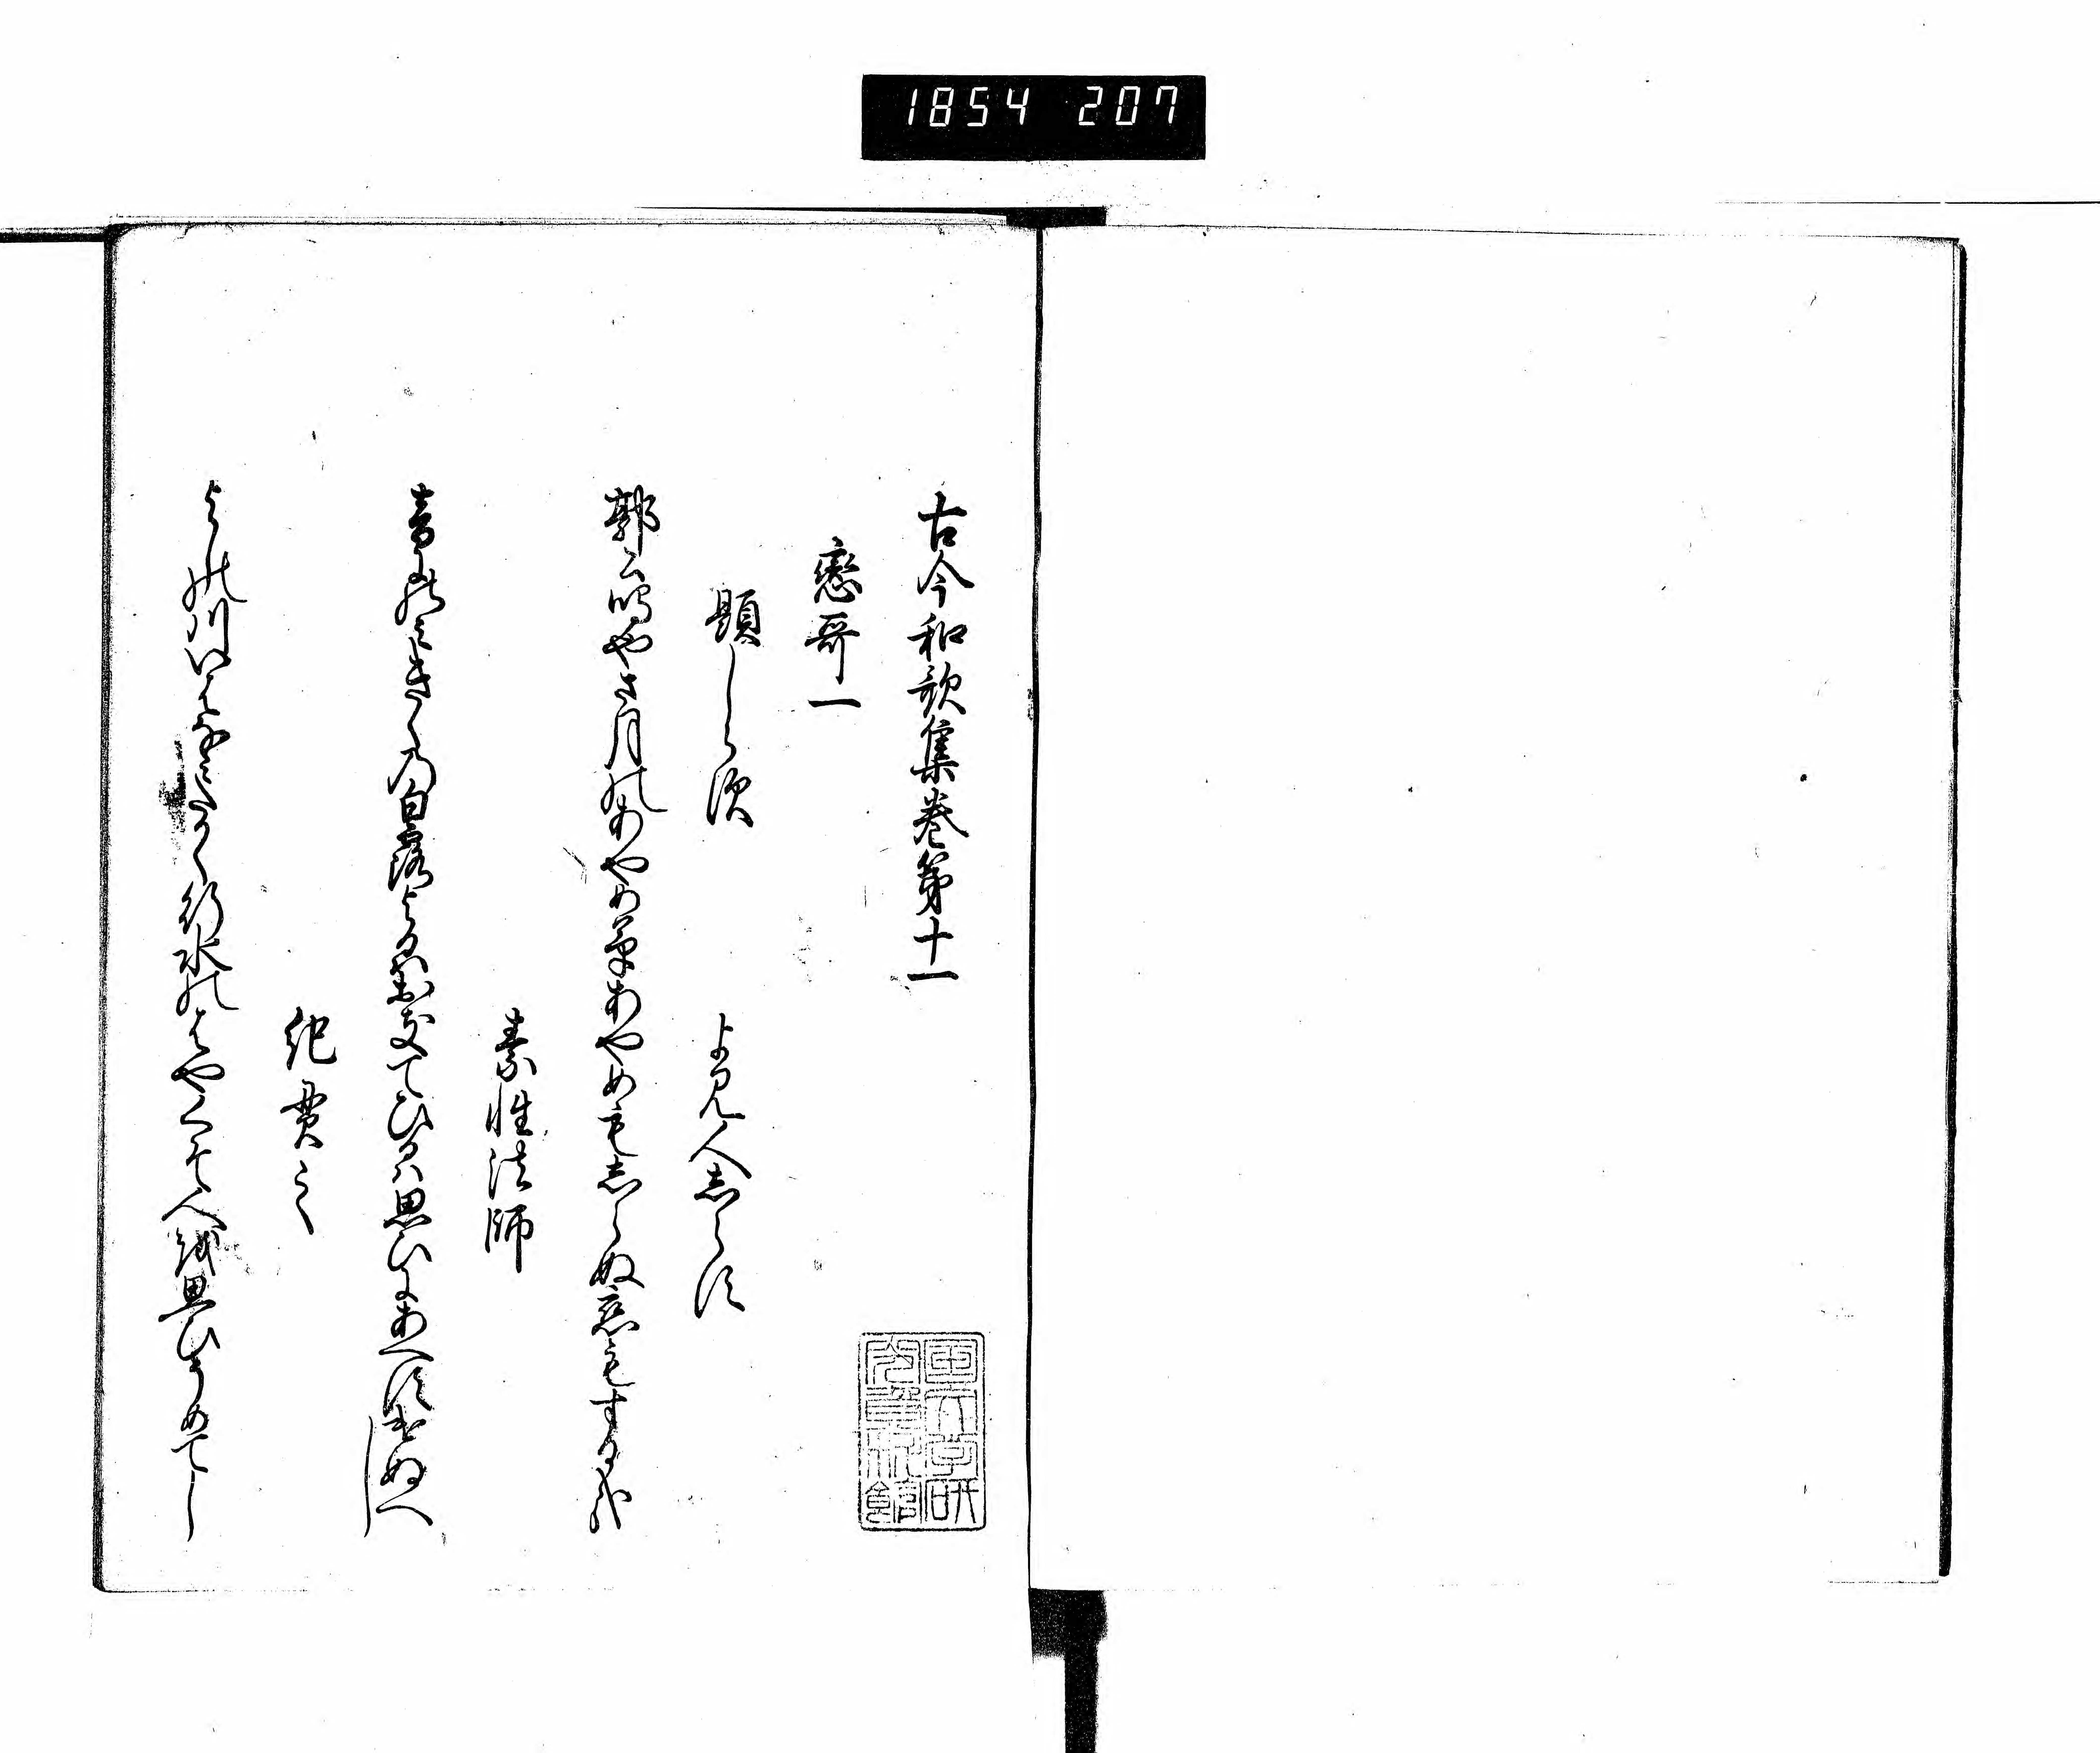 1854 207
古今和歌集巻第十一
戀哥一
題しらす
よみ人しらす
郭公鳴やさ月のあやめ草あやめもしらぬ恋もする哉
素性法師
音にのみきくの白露よるはおきてひるは思ひにあへすけぬへし
紀貫之
よしの川いはなみたかく行水のはやくそ人を思ひそめてし
国文学研究資料館